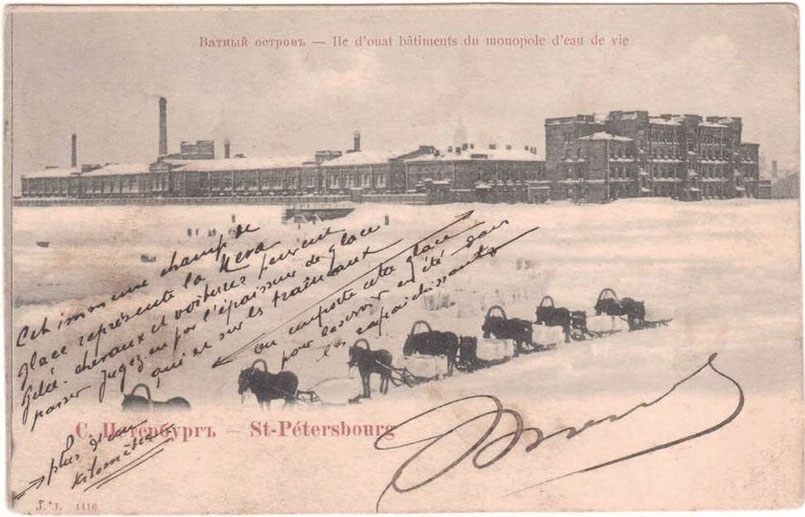 Ватный островъ — Ile d'ouat bâtiments du monopole d'eau de vie
Cet immense champ de
glace représente la Neva
gelée. chevaux et voitures peuvent
passer. Jugez en par l'épaisseur de glace
qui est sur les traineaux
on emporte cette glace
pour la conserver en été dans
les rafraichissants
С. Петербургъ — St-Pétersbourg
plus d'un
kilomètre
J. J. 1116